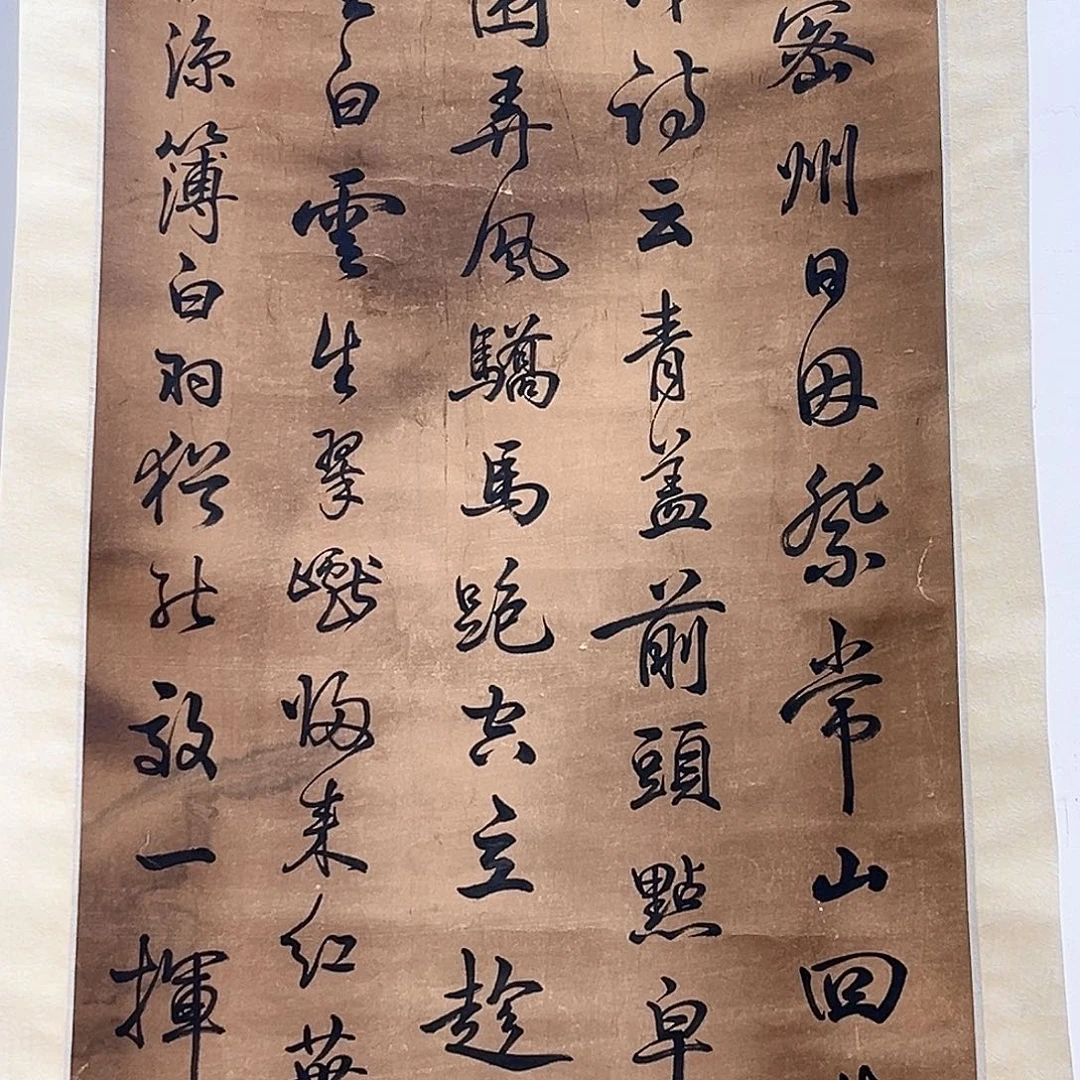 密州日因祭常山回
詩云青盖前頭點皁
围弄風驕馬跑空立趁
白雲生翠巘歸来紅葉
涼簿白羽猶能效一揮